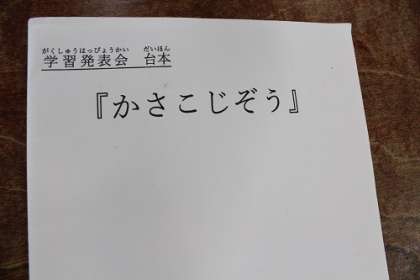 がくしゅうはっぴょうかい だいほん
学習発表会 台本
『かさこじぞう』